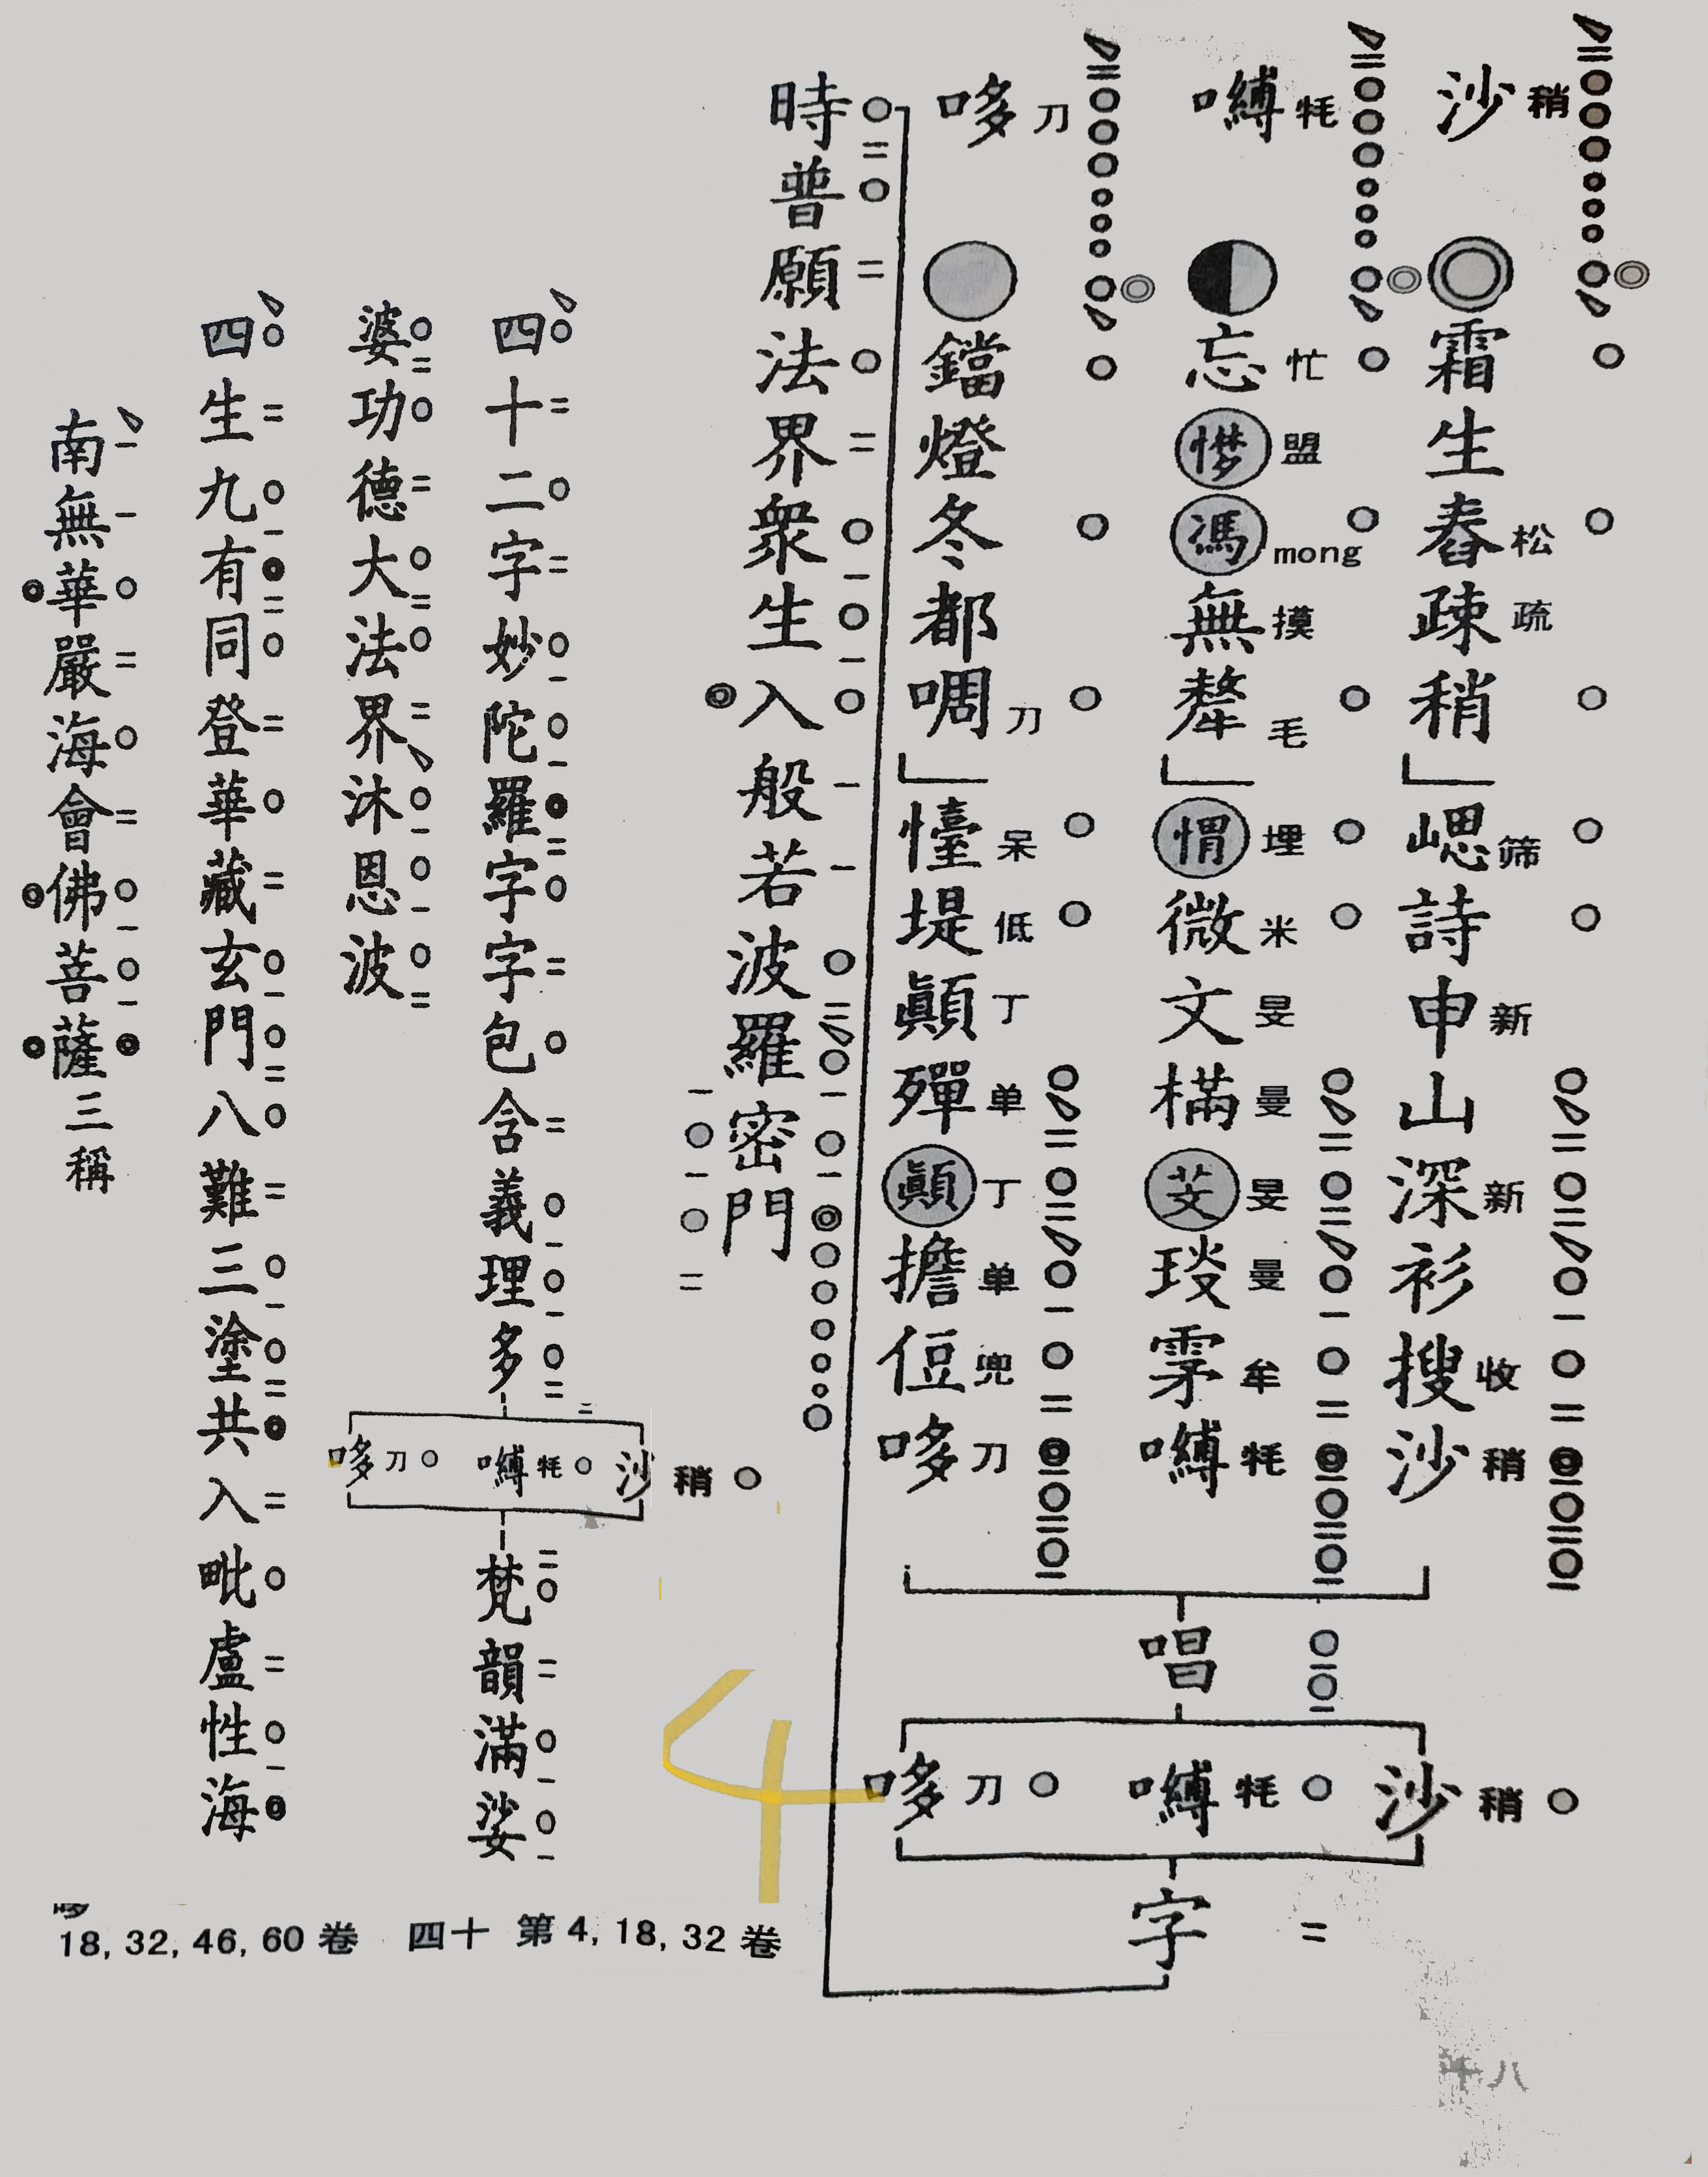 沙稍霜生舂松疎疏稍崼筛詩申新山深新衫搜收沙稍
嚩牦忘忙懜盟馮mong無摸犛毛㥜埋微米文旻樠曼芠旻㻵曼雺牟嚩牦
哆刀鐺燈冬都啁刀懛呆堤低顛丁殫单顛丁擔单侸兜哆刀
唱
沙稍 嚩牦 哆刀
字
時普願法界衆生入般若波羅密門
四十二字妙陀羅字字包含義理多
沙稍 嚩牦 哆刀
梵韻滿娑
婆功德大法界沐恩波
四生九有同登華藏玄門八難三塗共入毗盧性海
南無華嚴海會佛菩薩三稱
18, 32, 46, 60 卷 四十 第 4, 18, 32 卷
4
十八